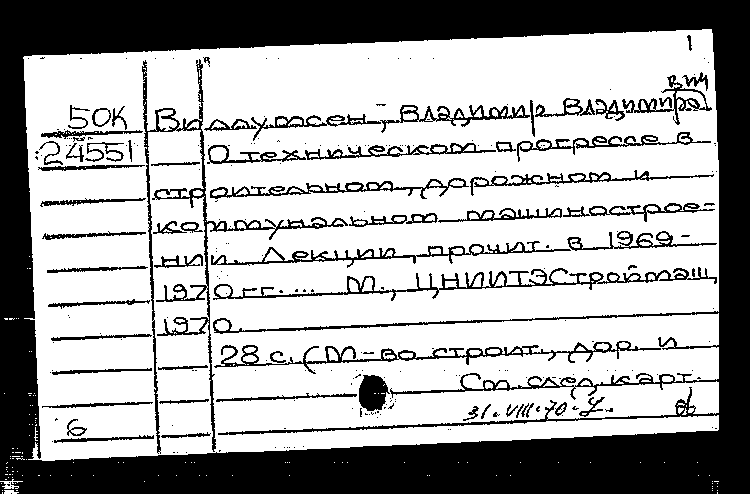 1
вич
50К Виллумсен, Владимир Владимиро
24551 О техническом прогрессе в
строительном, дорожном и
коммунальном машинострое-
нии. Лекции, прочит. в 1969-
1970 гг. ... М., ЦНИИТЭСтроймаш,
1970.
28 с. (М-во строит., дор. и
См. след. карт.
31.VIII.70.
6